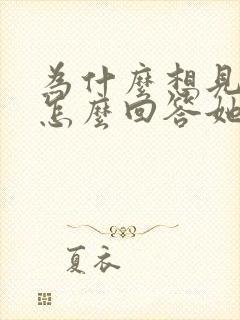 為什麼相見
怎麼回答她
夏衣